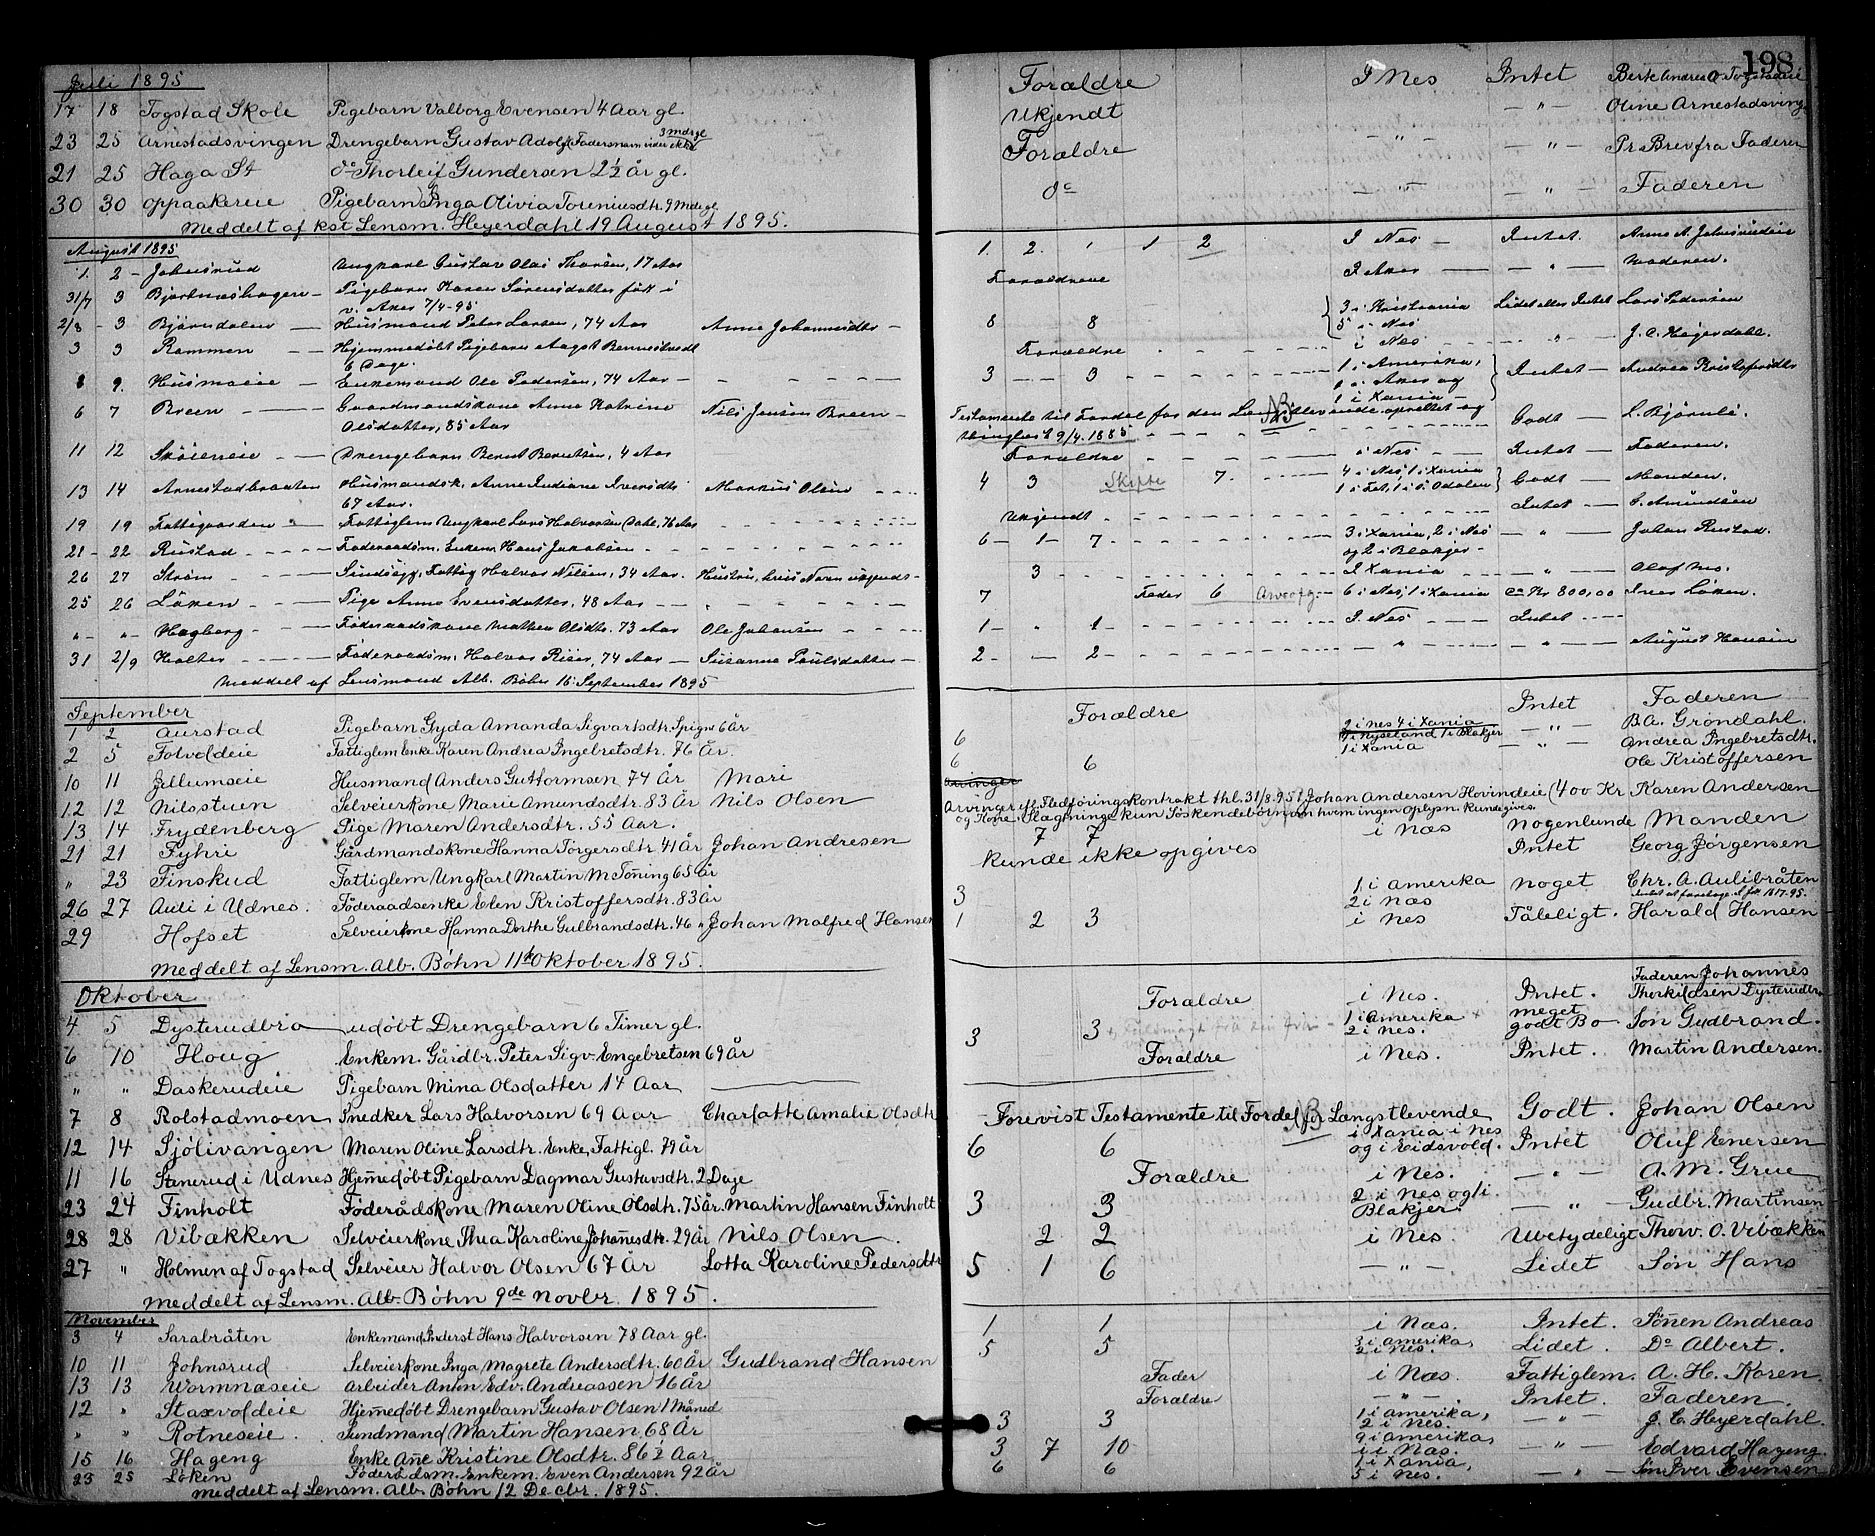 198
Juli 1895
17 18 Togstad Skole Pigebarn Valborg Evensen 4 Aar gl. Forældre I Nes Intet
23 25 Arnestadsvingen Drengebarn Gustav Adolf 3 mdr gl Ukjendt — " — Oline Arnestadsving
21 25 Haga St do Thorleif Gundersen 2½ år gl. Forældre " — " — Pr Brev fra Faderen
30 30 Oppaakereie Pigebarn Inga Olivia Toreniusdtr. 9 Mdr gl. do — " — — " — Faderen
Meddelt af kst Lensm. Heyerdahl 19 August 1895.
August 1895
1 2 Johnsrud Ungkarl Gustav Olai Thorsen, 17 Aar 1. 2. 1 1 2 I Nes Intet.
31/7 3 Bjertneshagen Pigebarn Karen Sørensdatter født i Forældrene I Aker — " — Moderen.
v. Aker 7/4-95
2/8 3 Bjørndalen Husmand Peter Larsen, 74 Aar Anne Johannesdtr 8 8 3 i Kristiania Lidet eller Intet Lars Pedersen
5 i Nes
3 3 Rammen Hjemmedøbt Pigebarn Forældre i Nes — " — J. C. Heyerdahl.
6 Dage.
8 9. Husmoeie Enkemand Ole Pedersen, 74 Aar 3 3 1 i Amerika, Intet Andrea Kristofersdtr
1 i Aker og
1 i Xania
6 7 Breen Gaardmandskone Anne Katrine Nils Jensen Breen Testamente til Fordel for den Længstlevende oprettet og NB Godt L. Bjørnli.
Olsdatter, 85 Aar thinglæst 9/4. 1885
11 12 Skøieneie Drengebarn Bernt Berntsen, 4 Aar Forældre i Nes Intet Faderen.
13 14 Arnestadbraaten Husmandsk. Anne Indiane Iversdtr Markus Olsen 4 3 Skifte 7. 4 i Nes, 1 i Xania Godt Manden.
67 Aar. 1 i Fet, 1 i S. Odalen
19 19 Fattiggaarden Fattiglem Ungkarl Lars Halvorsen Dahl, 76 Aar Ukjendt Intet G. Amundsen
21 22 Rustad Føderaadsm. Enkem. Hans Jakobsen 6 1 7 3 i Xania, 2 i Nes — " — Johan Rustad.
og 2 i Blakjer
26 27 Strøm Sindsyg, Fattig Halvor Nilsen, 34 Aar. Hustru, hvis Navn ukjendt 3 I Xania — " — Olaf Mo.
25 26 Løken Pige Anne Evensdatter, 48 Aar 7 Fader 6 Arveopg. 6 i Nes, 1 i Xania ca Kr 800,00 Iver Løken.
" " Hagberg Føderaadskone Mathea Olsdtr. 73 Aar Ole Johansen 1 " 1 I Nes Intet
31 2/9 Holter Føderaadsm. Halvor Riser, 74 Aar Susanne Poulsdatter 2 — 2 " — " — August Hansen
Meddelt af Lensmand Alb. Bøhn 16 September 1895
September
1 2 Aurstad Pigebarn Gyda Amanda Sigvartsdtr. Spigse 6 år Forældre Intet Faderen
2 5 Folvoldeie Fattiglem Enke Karen Andrea Ingebretsdtr. 76 År. 6 2 i Nes 4 i Xania — " — B.A. Grøndahl.
10 11 Jellumseie Husmand Anders Guttormsen 74 År Mari 6 6 1 i Nyseland 1 i Blakjer 1 i Xania — " — Andrea Ingebretsdtr.
12 12 Nilsstuen Selveierkone Marie Amundsdtr. 83 År Nils Olsen Arvinger Ole Kristoffersen
13 14 Frydenberg Pige Maren Andersdtr. 55 Aar. Arvinger eft. Fledføringskontrakt thl. 31/8. 95 Johan Andersen Hovindeie 400 Kr. Karen Andersen
og Kone. Slægtninge kun Søskendebørn om hvem ingen oplysn. kunde gives.
21 21 Fyhri Gårdmandskone Hanna Torgersdtr 41 År Johan Andresen 7 7 i Næs Nogenlunde Manden
" 23 Finskud Fattiglem Ungkarl Martin M Tøning 65 år kunde ikke opgives Intet Georg Jørgensen
26 27 Auli i Udnes. Føderaadsenke Elen Kristoffersdtr. 83 år 3 1 i Amerika 2 i Næs Noget Chr. A. Aulibråten
29 Hofset Selveierkone Hanna Dorthe Gulbrandsdtr. 46 " Johan Malfred Hansen 1 2 3 i Nes Tåleligt. Harald Hansen
Meddelt af Lensm. Alb. Bøhn 11te Oktober 1895.
Oktober
4 5 Dysterudbro udøbt Drengebarn 6 Timer gl. Forældre i Nes. Intet. Faderen Johannes Thorkildsen Dysterudbro
6 10 Houg Enkem. Gårdbr. Peter Sigv. Engebretsen 69 år 3 3 1 i Amerika 2 i Nes. meget godt Bo Søn Gudbrand.
" " Daskerudeie Pigebarn Mina Olsdatter 14 Aar Forældre i Nes. Intet. Martin Andersen.
7 8 Rolstadmoen Snedker Lars Halvorsen 69 Aar Charlotte Amalie Olsdtr Forevist Testamente til Fordel for Længstlevende NB Godt. Johan Olsen
12 14 Sjølivangen Maren Oline Larsdtr. Enke, Fattigl. 79 år 6 6 i Xania i Nes og i Eidsvold. Intet Oluf Enersen
11 16 Stenerud i Udnes Hjemmedøbt Pigebarn Dagmar Gustavsdtr. 2 Dage Forældre i Nes. — " — A. M. Grue
23 24 Finholt Føderådskone Maren Oline Olsdtr. 75 år. Martin Hansen Finholt 3 3 2 i Nes og 1 i Blakjer. — " — Gudbr. Martinsen
28 28 Vibækken Selveierkone Thea Karoline Johannesdtr. 29 år Nils Olsen. 2 2 i Nes. Ubetydeligt Thorv. O. Vibækken
27 " Holmen af Togstad Selveier Halvor Olsen 67 År Lotta Karoline Pedersdtr 5 1 6 — " — Lidet Søn Hans
Meddelt af Lensm. Alb. Bøhn 9de Novbr. 1895.
November
3 4 Sarabråten Enkemand Inderst Hans Halvorsen 78 Aar gl. 1 1 i Næs. Intet. Sønnen Andreas
10 11 Johnsrud Selveierkone Inga Magrete Andersdtr. 60 År Gudbrand Hansen 5 5 3 i Amerika, 2 i Nes. Lidet. Do Albert.
13 13 Wormnæseie Arbeider Anton Edv. Andreassen 16 år Fader i Næs. Fattiglem. A. H. Koren.
12 " Staxvoldeie Hjemmedøbt Drengebarn Gustav Olsen 1 Måned Forældre — " — Intet. Faderen.
" " Rotneseie. Sundmand Martin Hansen 68 År 3 3 1 i Amerika, 2 i Nes. — " — J. C. Heyerdahl.
15 16 Hageng Enke Anne Kristine Olsdtr. 86½ Aar 3 7 10 9 i Amerika, 1 i Næs. — " — Edvard Hageng.
23 25 Løken Føderådsm. Enkem. Even Andersen 92 år 6 6 1 i Xania, 5 i Nes. — " — Søn Iver Evensen
Meddelt af Lensm. Alb. Bøhn 12 Decbr. 1895.